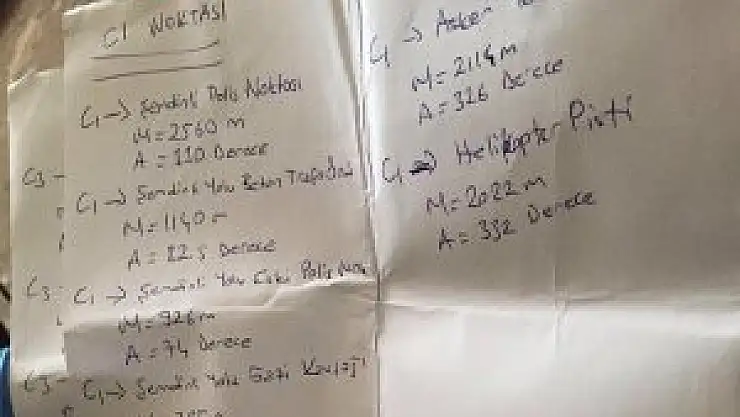 C1 NOKTASI
C1 → Şemdinli Polis Noktası
M = 2560 m
A = 110 Derece
C1 → Şemdinli Yolu Beton
M = 1140 m
A = 225 Derece
C1 → Şemdinli Yolu Eski Polis
M = 726 m
A = 74 Derece
C1 → Şemdinli Yolu
C3
C3
C3
C1 → Asker
M = 2114 m
A = 326 Derece
C1 → Helikopter Pisti
M = 2022 m
A = 332 Derece